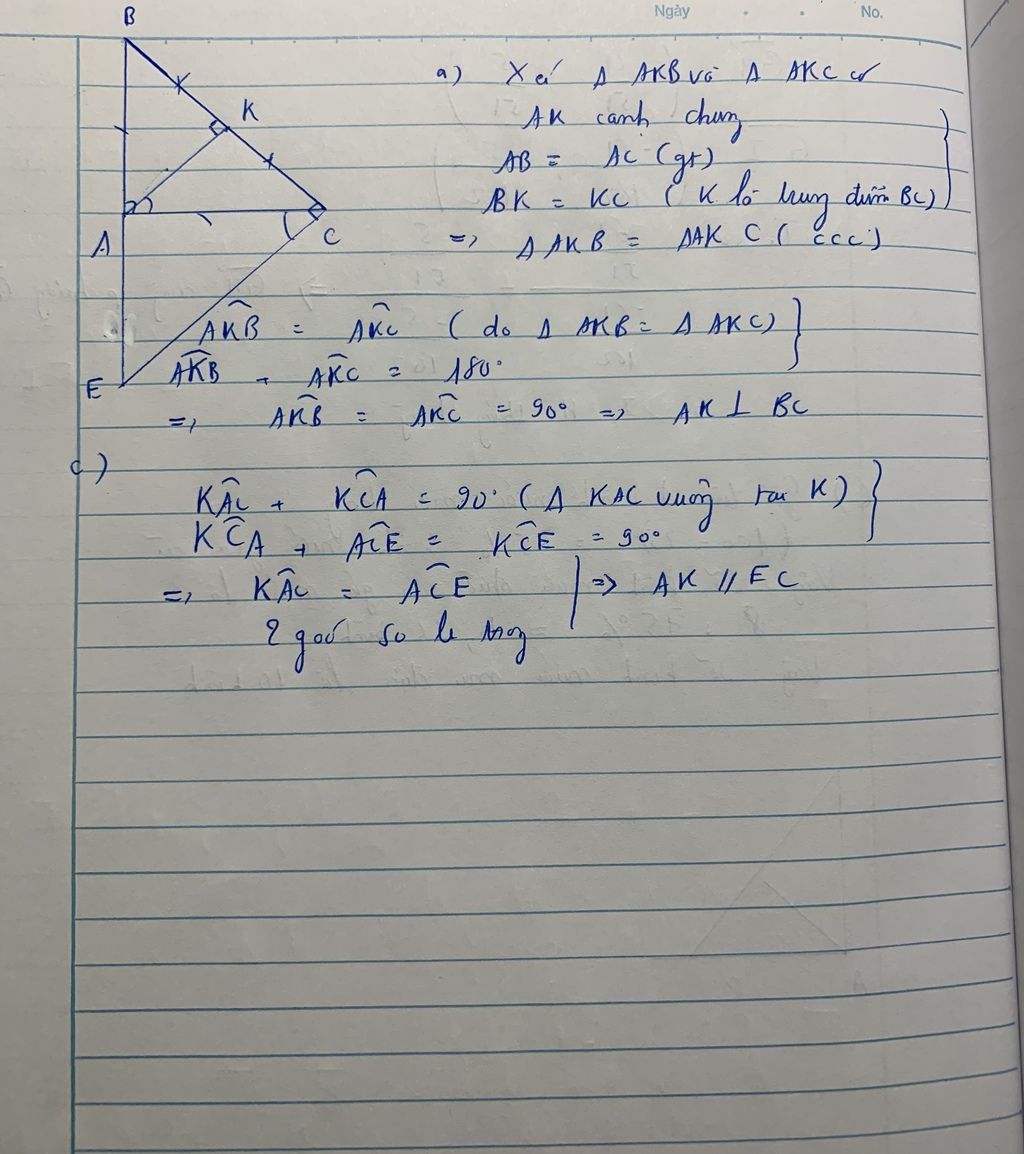 Ngày . . No.
B
K
A
C
E
a) Xét Δ AKB và Δ AKC có
AK cạnh chung
AB = AC (gt)
BK = KC ( K là trung điểm BC)
=> Δ AKB = ΔAK C ( ccc )
AKB̂ = AKĈ ( do Δ AKB = Δ AKC)
AK̂B + AK̂C = 180°
=> AK̂B = AK̂C = 90° => AK ⊥ BC
c)
KÂC + KĈA = 90° ( Δ KAC vuông tại K)
KĈA + AĈE = KĈE = 90°
=> KÂC = AĈE => AK // EC
2 góc so le trong